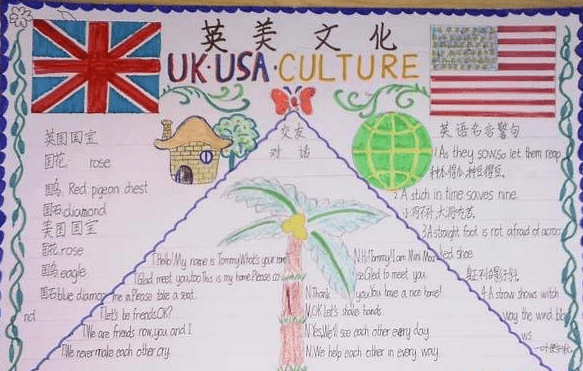 英美文化
UK·USA·CULTURE
英国国宝
国花 rose
国鸟 Red pigeon chest
国石diamond
美国国宝
国花.rose
国鸟.eagle
国石blue
交友
对话
T.Hello! My name is Tommy What's your
T.Glad meet you.too This is my home.Please
me in.Please take a seat.
T.Let's be friends,OK?
T.We are friends now,you and I
T.We never make each other cry.
N.Hi!Tommy.I am Mini
Glad to meet you
N.Thank you.You have a nice home!
N.OK.Let's shake hands.
N.Yes.We'll see each other every day
N.We help each other in every way.
英语名言警句
1.As they sow,so let them reap
2.A stich in time saves nine.
3.A straight foot is not afraid of across
ked shoe
4.A straw shows witch
way the wind blo
ws.